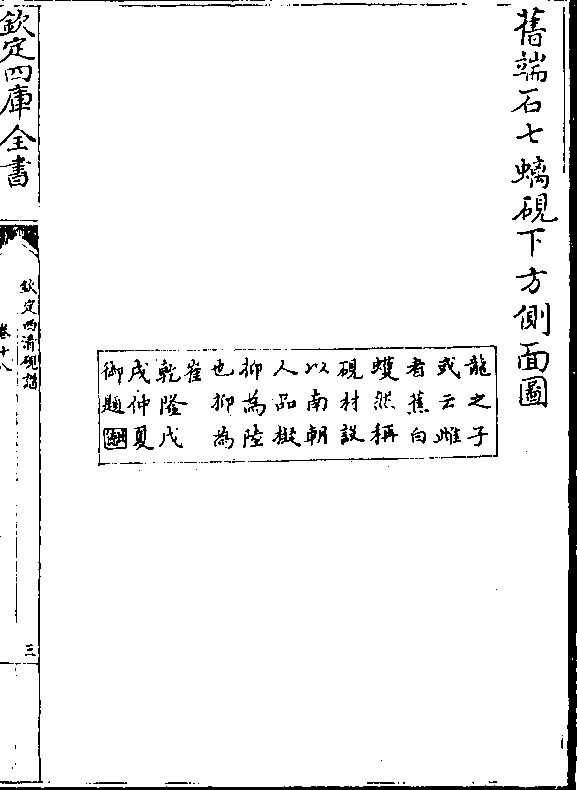 舊端石七螭硯下方側面圖
龍之子
或云雌
者蕉白
蠖然稱
硯材設
以南朝
人品擬
抑為陸
也抑為
崔
乾隆戊
戌仲夏
御題
欽定四庫全書
欽定西清硯譜
卷十八
三